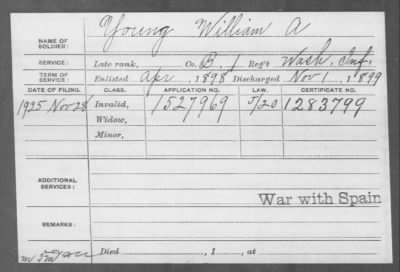 NAME OF SOLDIER: Young William A
SERVICE: Late rank, Co. B, 1 Reg't Wash. Inf.
TERM OF SERVICE: Enlisted Apr , 1898 Discharged Nov 1 , 1899
DATE OF FILING. CLASS. APPLICATION NO. LAW. CERTIFICATE NO.
1925 Nov 28 Invalid, 1527969 5/20 1283799
Widow,
Minor,
ADDITIONAL SERVICES:
War with Spain
REMARKS:
Died , 1 , at